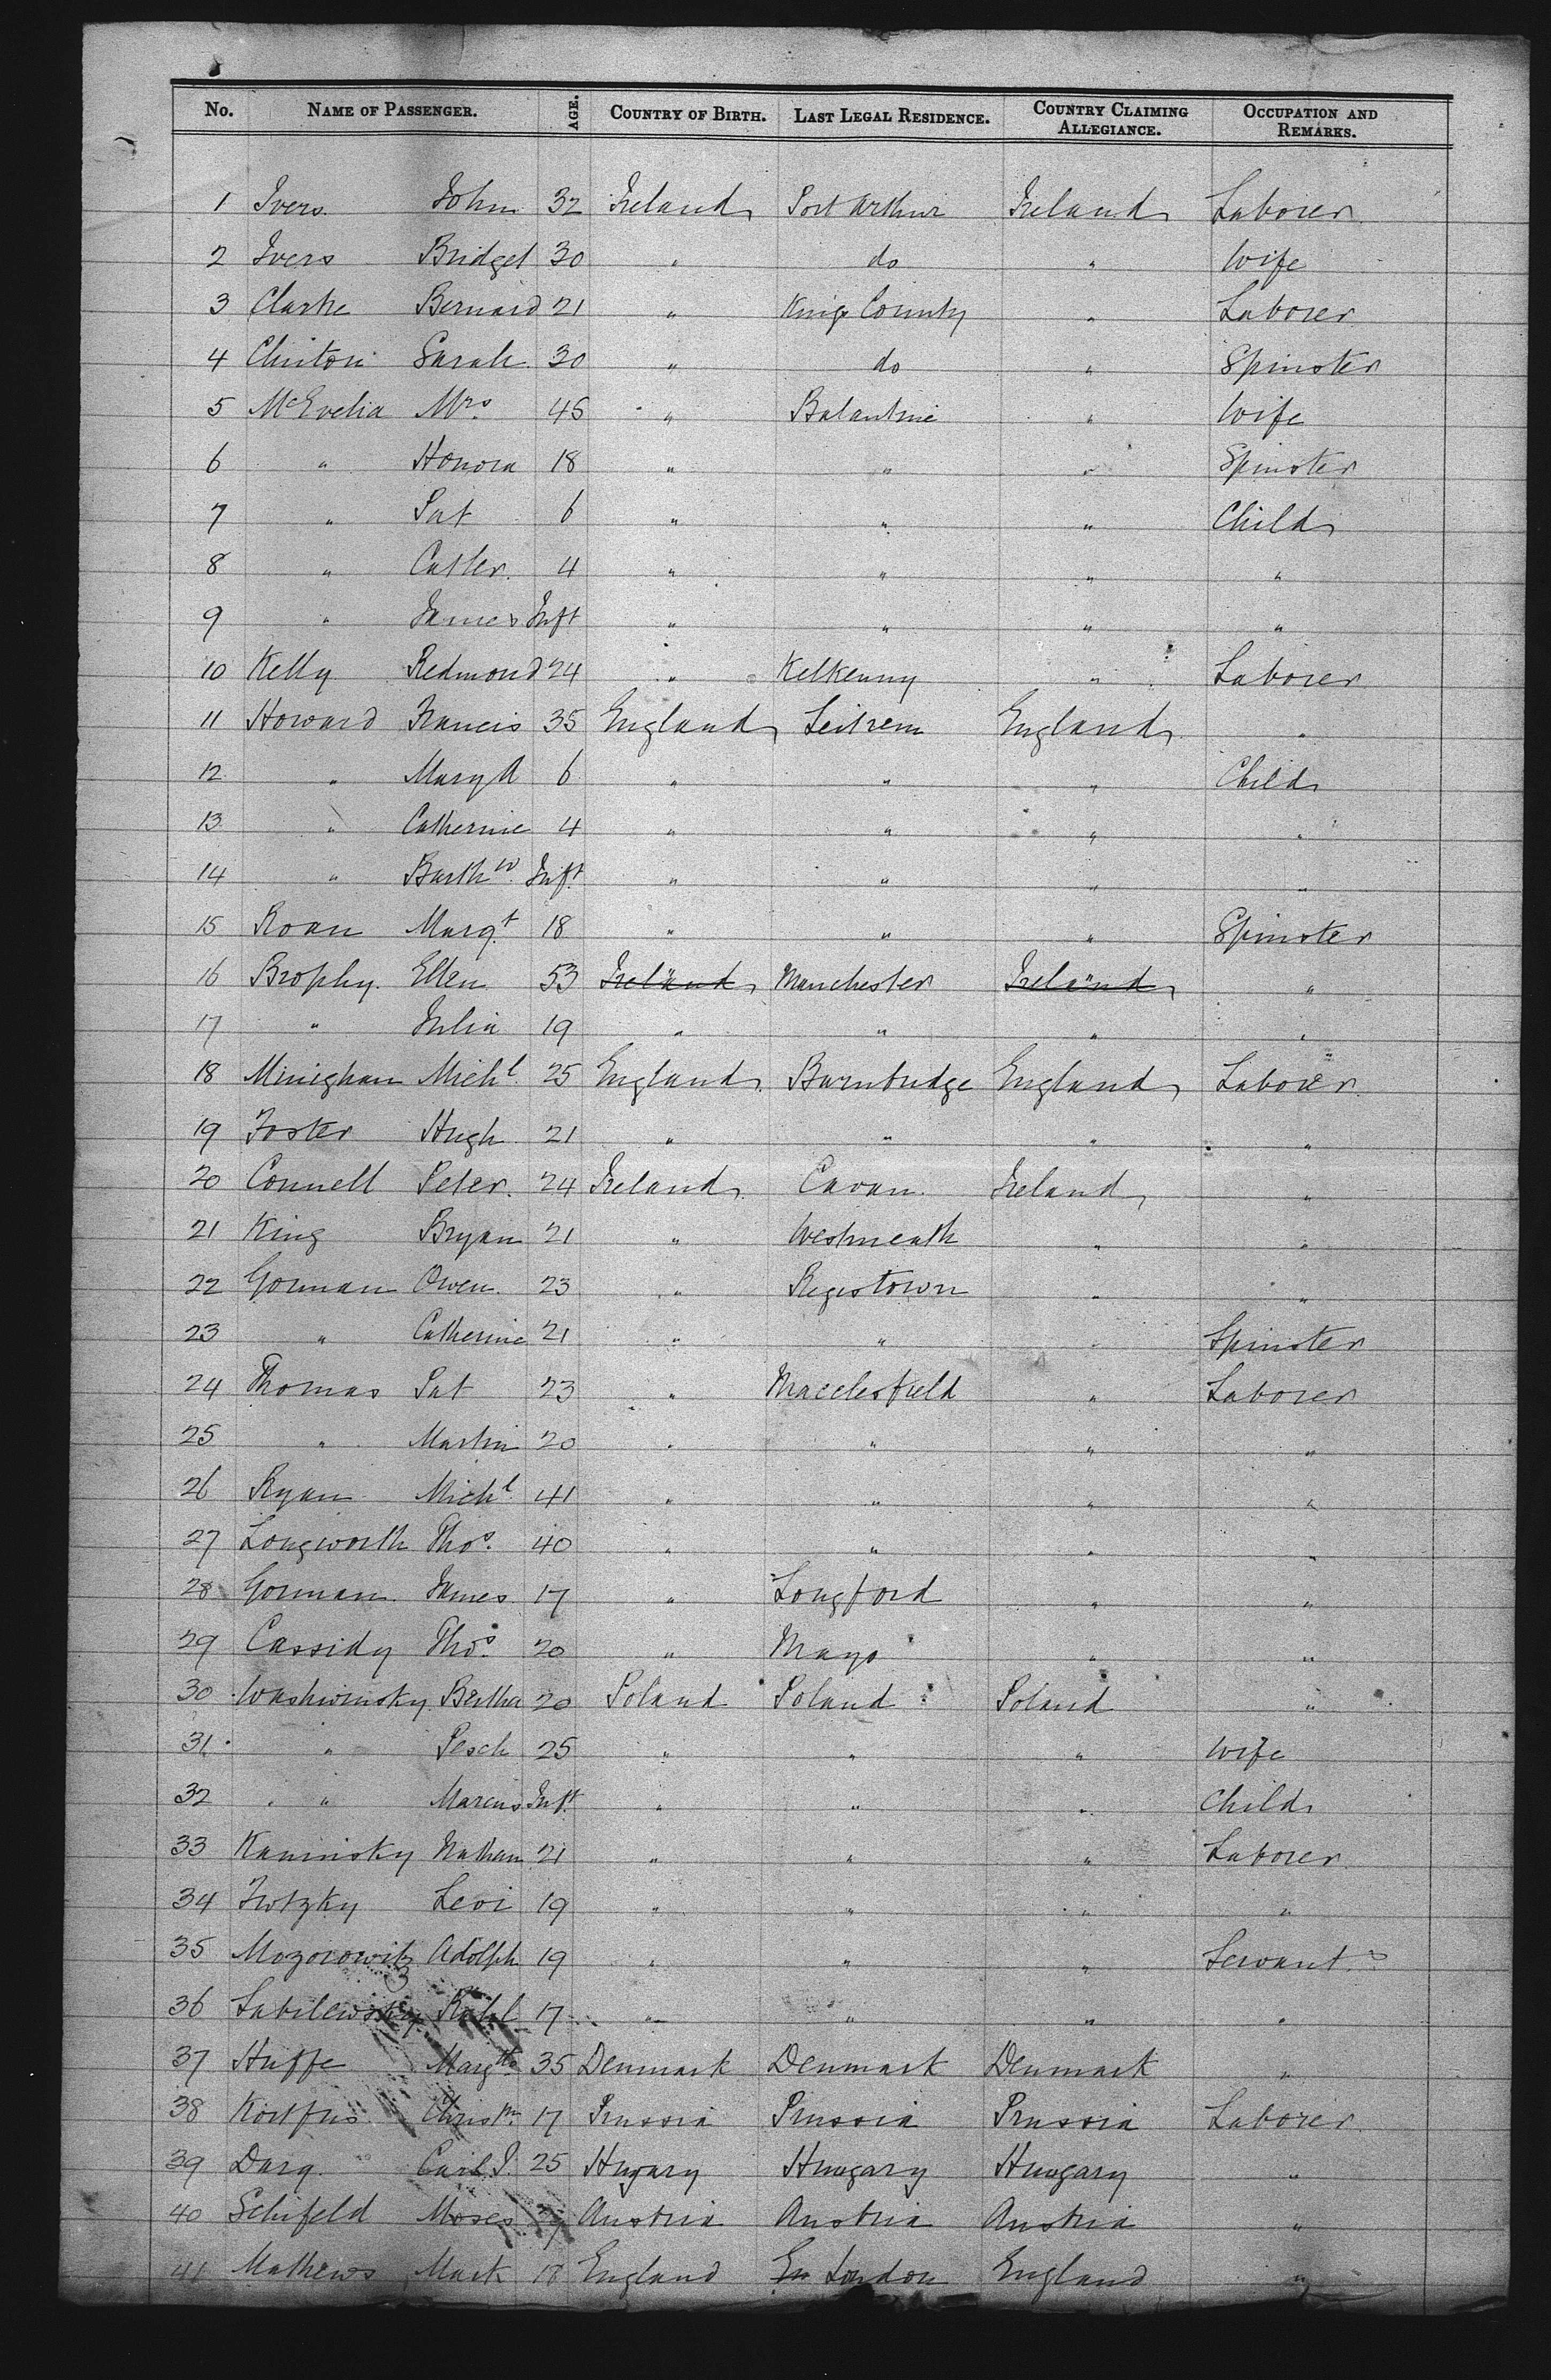 No. NAME OF PASSENGER. AGE. COUNTRY OF BIRTH. LAST LEGAL RESIDENCE. COUNTRY CLAIMING ALLEGIANCE. OCCUPATION AND REMARKS.
1 Ivers John 32 Ireland Port Arthur Ireland Laborer
2 Ivers Bridget 30 " do " Wife
3 Clarke Bernard 21 " Kings County " Laborer
4 Clinton Sarah 30 " do " Spinster
5 McEvelia Mrs 45 " Balantine " Wife
6 " Honora 18 " " " Spinster
7 " Pat 6 " " " Child
8 " Cather. 4 " " " "
9 " James Inft " " " "
10 Kelly Redmond 24 " Kelkenny " Laborer
11 Howard Francis 35 England Leitrem England "
12 " Mary A 6 " " " Child
13 " Catherine 4 " " " "
14 " Barthw Inft " " " "
15 Roan Margt 18 " " " Spinster
16 Brophy Ellen 53 Ireland Manchester Ireland "
17 " Julia 19 " " " "
18 Minighan Michl 25 England Barnbridge England Laborer
19 Foster Hugh 21 " " " "
20 Connell Peter 24 Ireland Cavan Ireland "
21 King Bryan 21 " Westmeath " "
22 Gorman Owen 23 " " "
23 " Catherine 21 " " " Spinster
24 Thomas Pat 23 " Macclesfield " Laborer
25 " Martin 20 " " " "
26 Ryan Michl 41 " " " "
27 Longworth Thos. 40 " " " "
28 Gorman James 17 " Longford " "
29 Cassidy Thos. 20 " Mayo " "
30 Washwinsky Bertha 20 Poland Poland Poland "
31 " Pesch 25 " " " Wife
32 " Marcus Inft " " " Child
33 Kaminsky Nathan 21 " " " Laborer
34 Levi 19 " " " "
35 Mozorowitz Adolph 19 " " " Servant
36 17 " " " "
37 Huffe 35 Denmark Denmark Denmark "
38 17 Prussia Prussia Prussia Laborer
39 Darg Carl 25 Hugary Hungary Hungary "
40 Schifeld Moses Austria Austria Austria "
41 Mathews Mark 18 England London England "